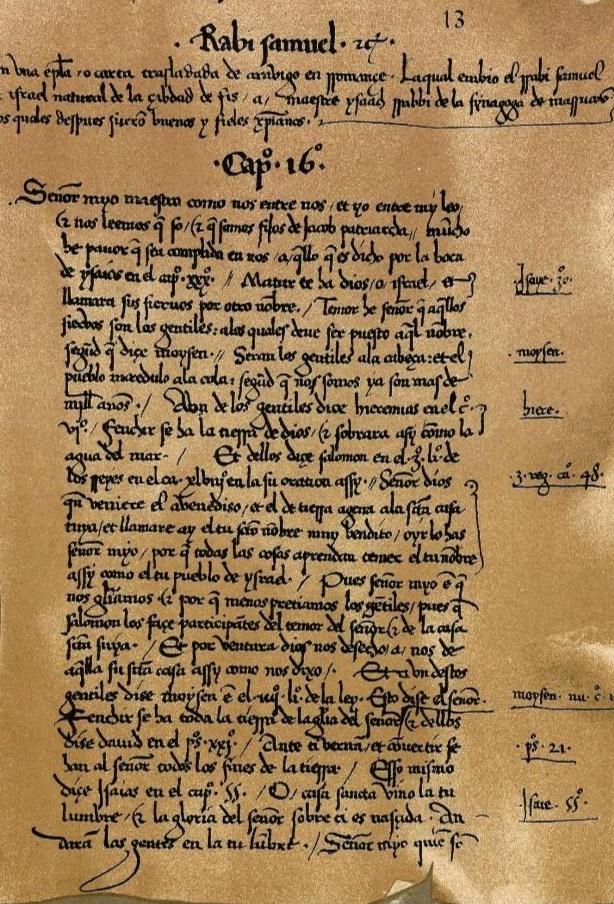 13
· Rabi samuel · ⁊cͣ.
n vna epl̄a / o carta trasladada de arauigo en rromançe · Laqual embio el rrabi samuel
israel natural de la çibdad de fis / a / maestre ysaach rrabbi de la synagoga de marruecos
os quales despues fuerō buenos y fieles xp̄ianos.
· Capº · 16º ·
Señor myo maestro como nos entre nos / et yo entre mỹ leo /
⁊ nos leemos q̄ so / ⁊ q̄ somos fijos de Jacob patriarcha // mūcho
he pauor q̄ sea complida en nos / a / q̄llo q̄ es dicho por la boca
de ysaias en el capº · xxxº · // Matar te ha dios / o israel / et
llamara sus sieruos por otro nōbre. / Temor he señor q̄ aq̄llos
sieruos son los gentiles : a los quales deue ser puesto aq̄l nōbre.
segūd q̄ diçe moysen · // Seran los gentiles a la cabeça : et el
pueblo incredulo a la cola : segūd q̄ nos somos ya son mas de
mill años · / Avn de los gentiles dice hieremias en el cº ·
viº · / Fenchir se ha la tierra de dios / ⁊ sobrara asy cōmo la
agua del mar · / Et dellos diçe salomon en el · 3º · liº · de
los reyes en el ca · xlviijº en la su oration assy · // Señor dios
qn̄ veniere el abenediso / et el de tierra agena a la sc̄ta casa
tuya / et llamare ay el tu sc̄to nōbre muy bendito / oyr lo has
señor myo / por q̄ todas las cosas aprendan temer el tu nōbre
assy como el tu pueblo de ysrael · / Pues señor myo ē q̄
nos gl̄iamos ⁊ por q̄ menos pretiamos los gētiles / pues q̄
salomon los façe participantes del temor del señor ⁊ de la casa
sc̄ta suya · / Et por ventura dios nos desecho / a / nos de
aq̄lla su sc̄ta casa assy como nos dixo · / Et a vn destos
gentiles dise moysen ē el · iiijº · liº · de la ley · Esto dise el señor ·
Fenchir se ha toda la tierra de la gl̄ia del señor / ⁊ dellos
dise dauid en el pˢº · xxjº · / Ante ti vernā / et cōuertir se
han al señor todos los fines de la tierra · / Esso mismo
diçe Isaias en el cap · §§º · / O / casa sancta vino la tu
lumbre / ⁊ la gloria del señor sobre ti es nasçida · An
darā las gentes en la tu lūbre · / Señor myo quiē sō
Jsaye · 30.
· moysen ·
hiere ·
3 · reg · cº · 48.
moysen · nu · cº ·
· pˢº · 21 ·
Jsaie · §§º ·